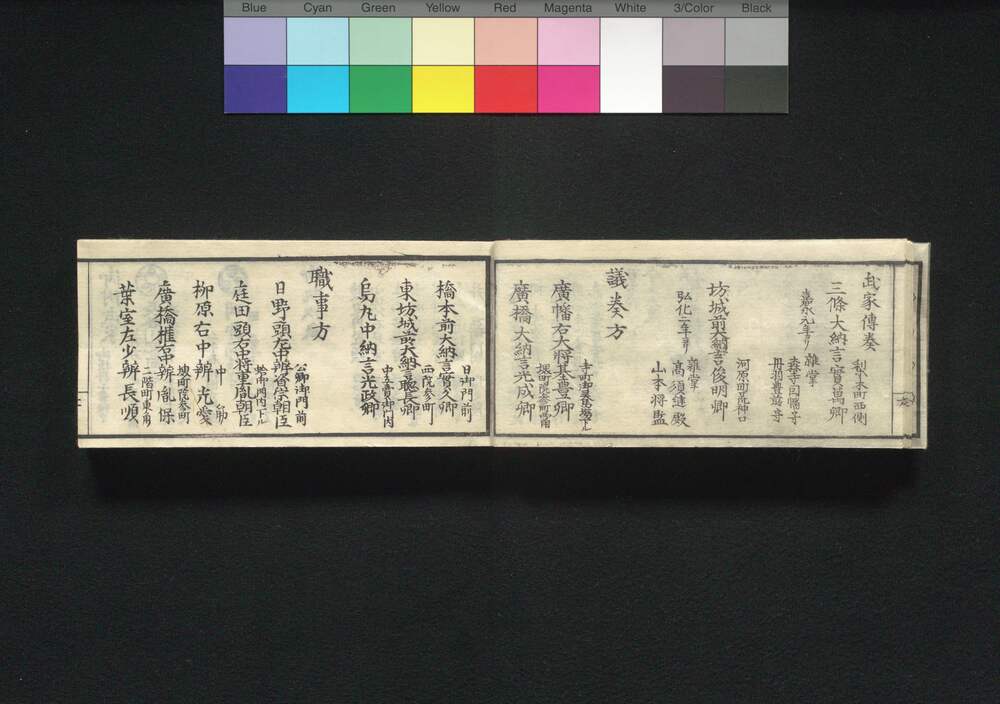 Blue Cyan Green Yellow Red Magenta White 3/Color Black
武家傳奏
三條大納言實萬卿
梨木町西側
嘉永元年ヨリ
雜掌
森寺因幡守
丹羽豊前守
坊城前大納言俊明卿
河原町荒神口
弘化二年ヨリ
雜掌
高須縫殿
山本将監
議奏方
廣幡右大将基豊卿
寺町御霊馬場下ル
廣橋大納言光成卿
堀町院参町角
橋本前大納言實久卿
日御門前
東坊城前大納言聡長卿
西院参町
烏丸中納言光政卿
中立賣御門内
職事方
日野頭左中辨資宗朝臣
公卿御門前
庭田頭右中将重胤朝臣
柳原右中辨光愛
中筋
廣橋權右中辨胤保
堀町院参町
葉室左少辨長順
二階町東角